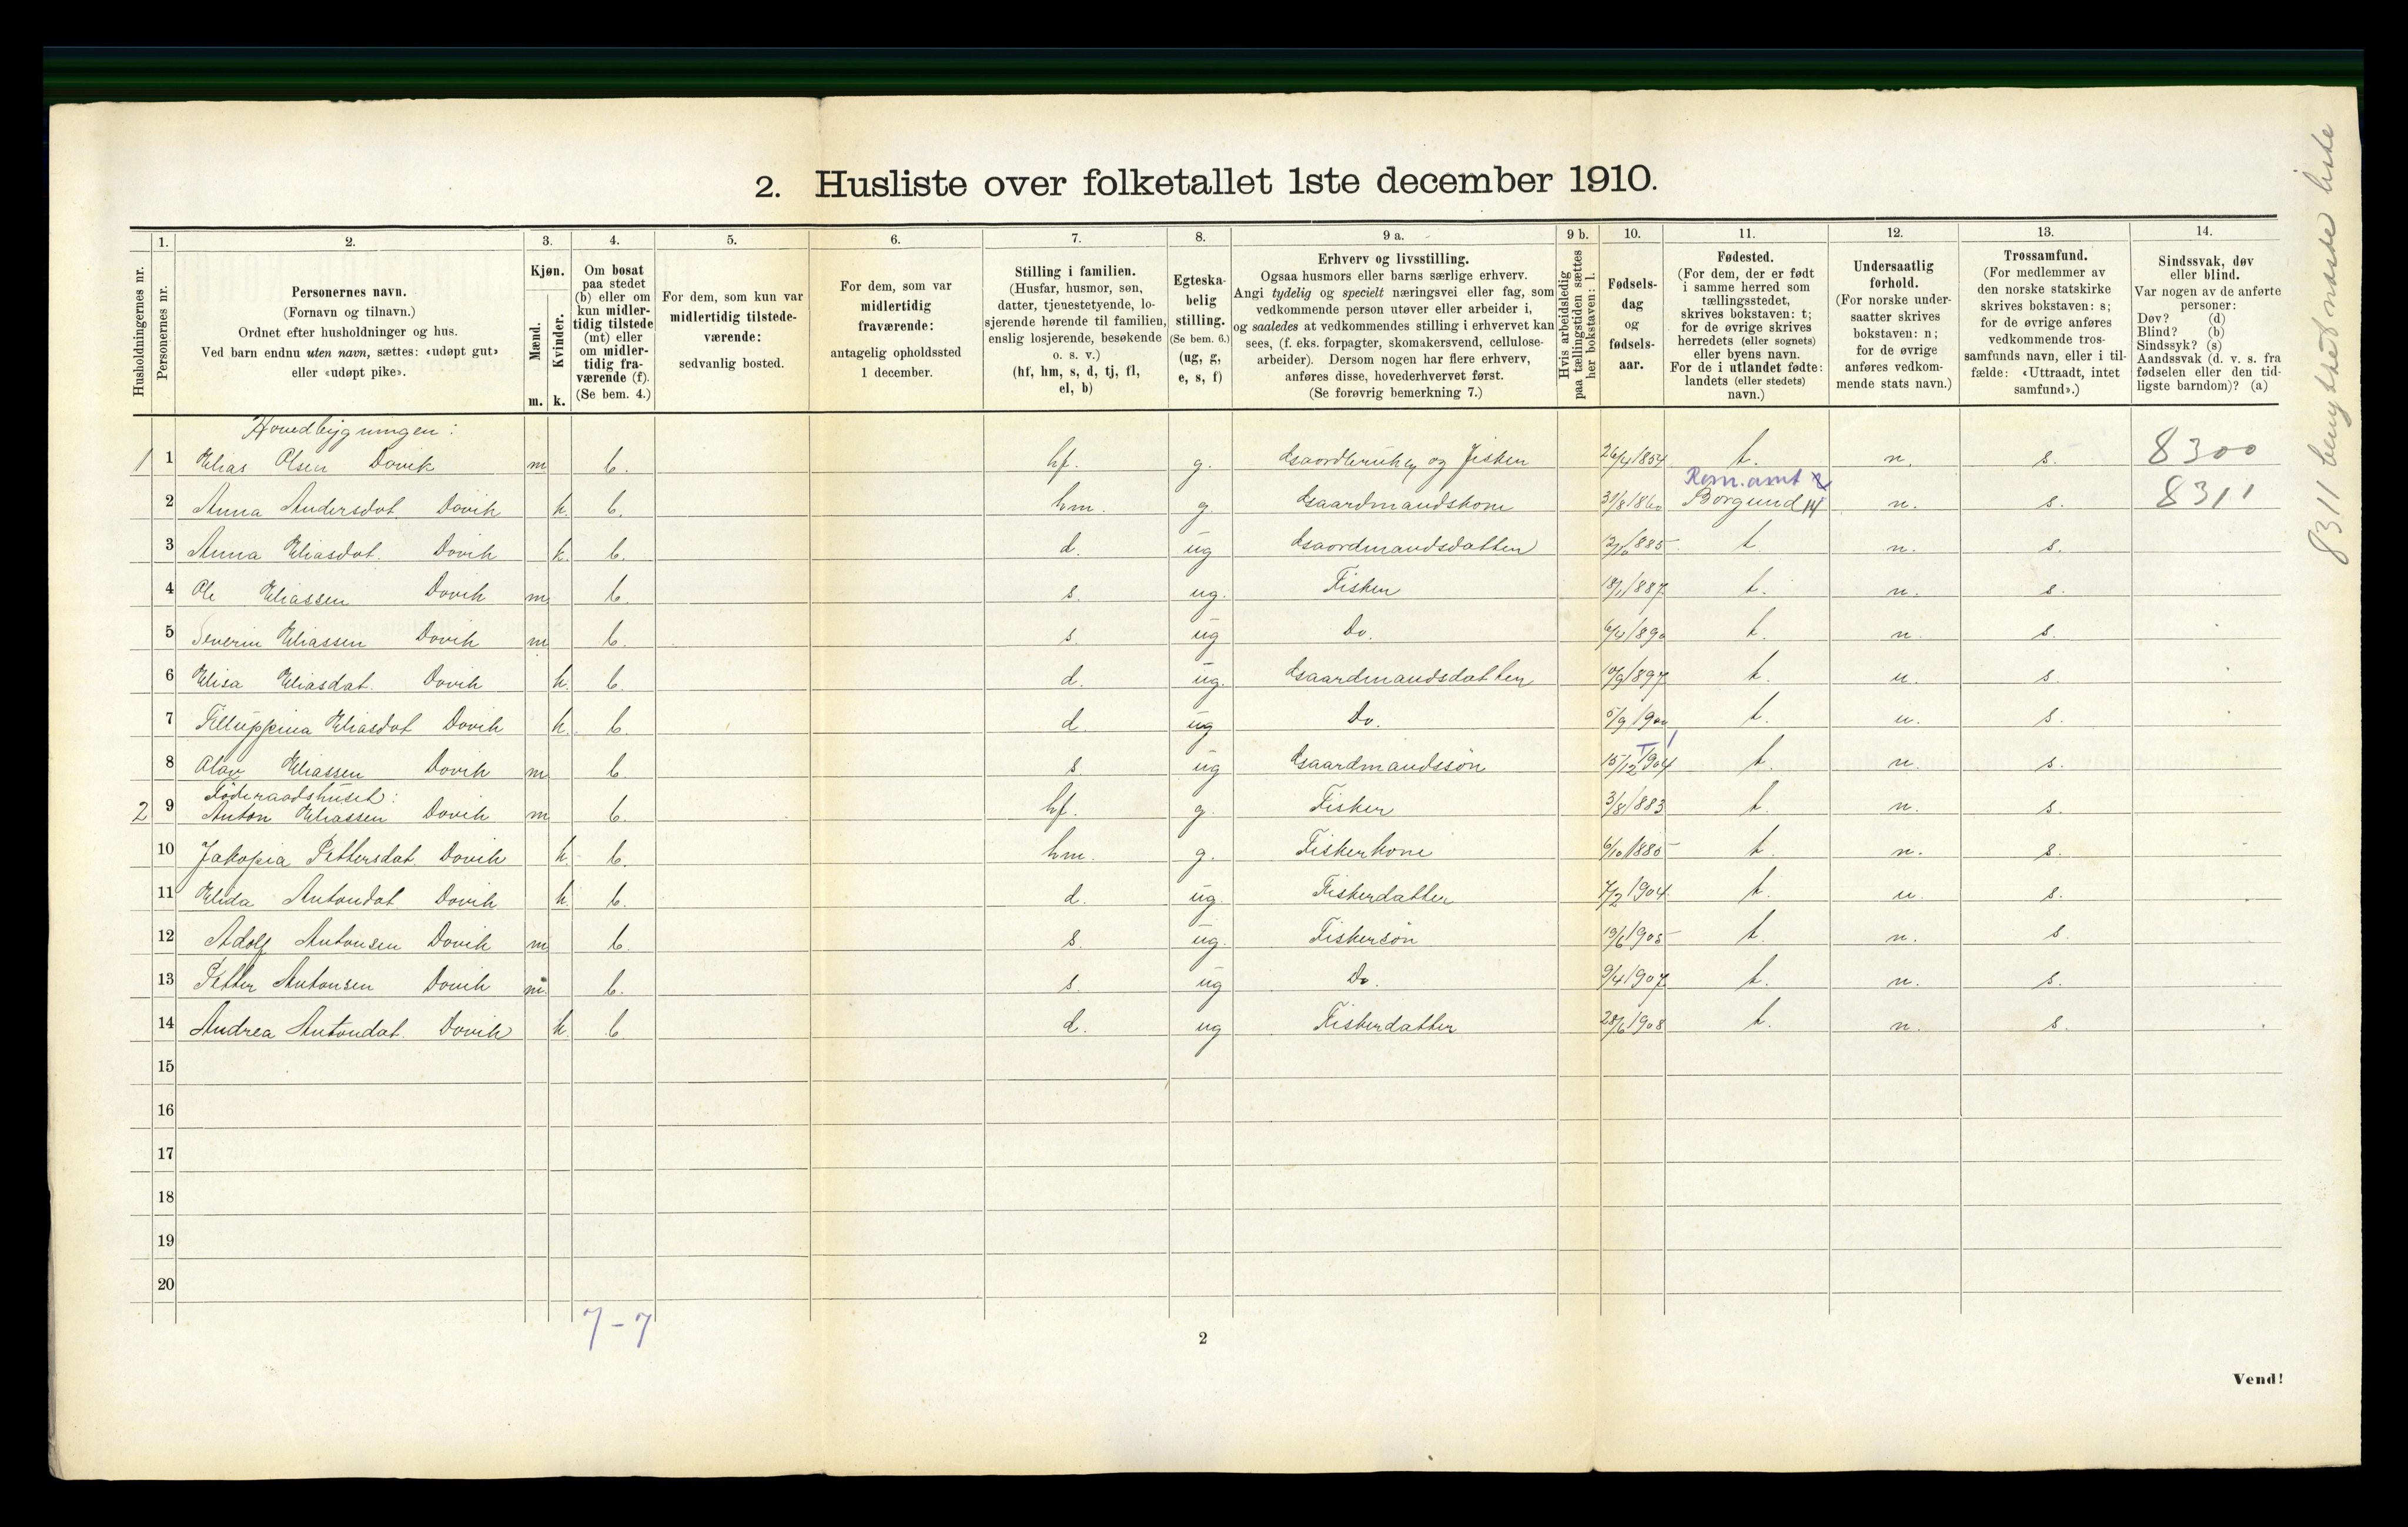 2. Husliste over folketallet 1ste december 1910.
8311 benyttet næste liste
Husholdningernes nr.
1. Personernes nr.
2. Personernes navn.
(Fornavn og tilnavn.)
Ordnet efter husholdninger og hus.
Ved barn endnu uten navn, sættes: «udøpt gut»
eller «udøpt pike».
3. Kjøn.
Mænd. Kvinder.
m. k.
4. Om bosat
paa stedet
(b) eller om
kun midler-
tidig tilstede
(mt) eller
om midler-
tidig fra-
værende (f).
(Se bem. 4.)
5. For dem, som kun var
midlertidig tilstede-
værende:
sedvanlig bosted.
6. For dem, som var
midlertidig
fraværende:
antagelig opholdssted
1 december.
7. Stilling i familien.
(Husfar, husmor, søn,
datter, tjenestetyende, lo-
sjerende hørende til familien,
enslig losjerende, besøkende
o. s. v.)
(hf, hm, s, d, tj, fl,
el, b)
8. Egteska-
belig
stilling.
(Se bem. 6.)
(ug, g,
e, s, f)
9 a. Erhverv og livsstilling.
Ogsaa husmors eller barns særlige erhverv.
Angi tydelig og specielt næringsvei eller fag, som
vedkommende person utøver eller arbeider i,
og saaledes at vedkommendes stilling i erhvervet kan
sees, (f. eks. forpagter, skomakersvend, cellulose-
arbeider). Dersom nogen har flere erhverv,
anføres disse, hovederhvervet først.
(Se forøvrig bemerkning 7.)
9 b. Hvis arbeidsledig
paa tællingstiden sættes
her bokstaven: l.
10. Fødsels-
dag
og
fødsels-
aar.
11. Fødested.
(For dem, der er født
i samme herred som
tællingsstedet,
skrives bokstaven: t;
for de øvrige skrives
herredets (eller sognets)
eller byens navn.
For de i utlandet fødte:
landets (eller stedets)
navn.)
12. Undersaatlig
forhold.
(For norske under-
saatter skrives
bokstaven: n;
for de øvrige
anføres vedkom-
mende stats navn.)
13. Trossamfund.
(For medlemmer av
den norske statskirke
skrives bokstaven: s;
for de øvrige anføres
vedkommende tros-
samfunds navn, eller i til-
fælde: «Uttraadt, intet
samfund».)
14. Sindssvak, døv
eller blind.
Var nogen av de anførte
personer:
Døv? (d)
Blind? (b)
Sindssyk? (s)
Aandssvak (d. v. s. fra
fødselen eller den tid-
ligste barndom)? (a)
Hovedbygningen:
1 1 Elias Olsen Dovik m b. hf. g. Gaardbruker og Fisker 26/4 1854 t. n. s. 8300
Rom. amt
2 Anna Andersdat. Dovik k. b. hm. g. Gaardmandskone 31/8 1860 Borgund n. s. 8311
3 Anna Eliasdat. Dovik k. b. d. ug Gaardmandsdatter 12/10 1885 t n. s.
4 Ole Eliassen Dovik m b. s. ug. Fisker 18/1 1887 t. n. s.
5 Severin Eliassen Dovik m b. s. ug Do. 6/4 1890 t. n. s.
6 Elisa Eliasdat. Dovik k. b. d. ug. Gaardmandsdatter 10/9 1897 t. n. s.
7 Filluppina Eliasdat Dovik k. b. d. ug Do. 5/9 1900 t. n. s.
8 Olav Eliassen Dovik m b s. ug Gaardmandssøn 15/12 1904 t. n. s.
Føderaadshuset:
2 9 Anton Eliassen Dovik m b. hf. g. Fisker 3/8 1883 t. n. s.
10 Jakopia Pettersdat. Dovik k. b. hm. g. Fiskerkone 6/10 1885 t. n. s.
11 Elida Antondat. Dovik k. b. d. ug. Fiskerdatter 7/2 1904 t. n. s.
12 Adolf Antonsen Dovik m b. s. ug. Fiskersøn 19/6 1905 t. n. s.
13 Petter Antonsen Dovik m. b. s. ug Do. 9/4 1907 t. n. s.
14 Andrea Antondat. Dovik k. b. d. ug Fiskerdatter 28/6 1908 t. n. s.
15
16
17
18
19
20
7-7
2
Vend!